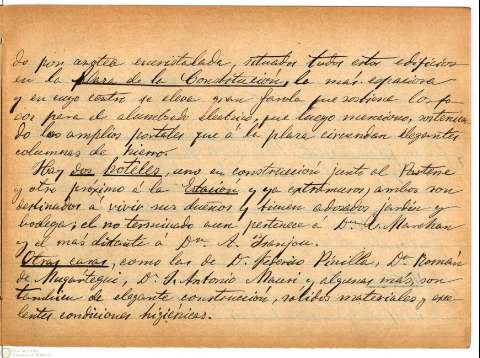 do por azotea encristalada, situados todos estos edificios
en la plaza de la Constitución, la más espaciosa
y en cuyo centro se eleva gran farola que sostiene los fo
cos para el alumbrado electrico, que luego menciono, sostenien
do los amplios portales que á la plaza circundan elegantes
columnas de hierro.
Hay dos hoteles, uno en construcción junto al
y otro proximo á la Estación y ya extramuros; ambos son
destinados á vivir sus dueños y tienen adosados jardin y
bodega; el no terminado aun pertenece á Dn.
y el más distante á Dn. A.
Otras casas, como las de D. Federico Pinilla, Dn. Román
de Mugartegui, Dn. J. Antonio Mauri y algunas más, son
tambien de elegante construcción, solidos materiales y exce
lentes condiciones higienicas.